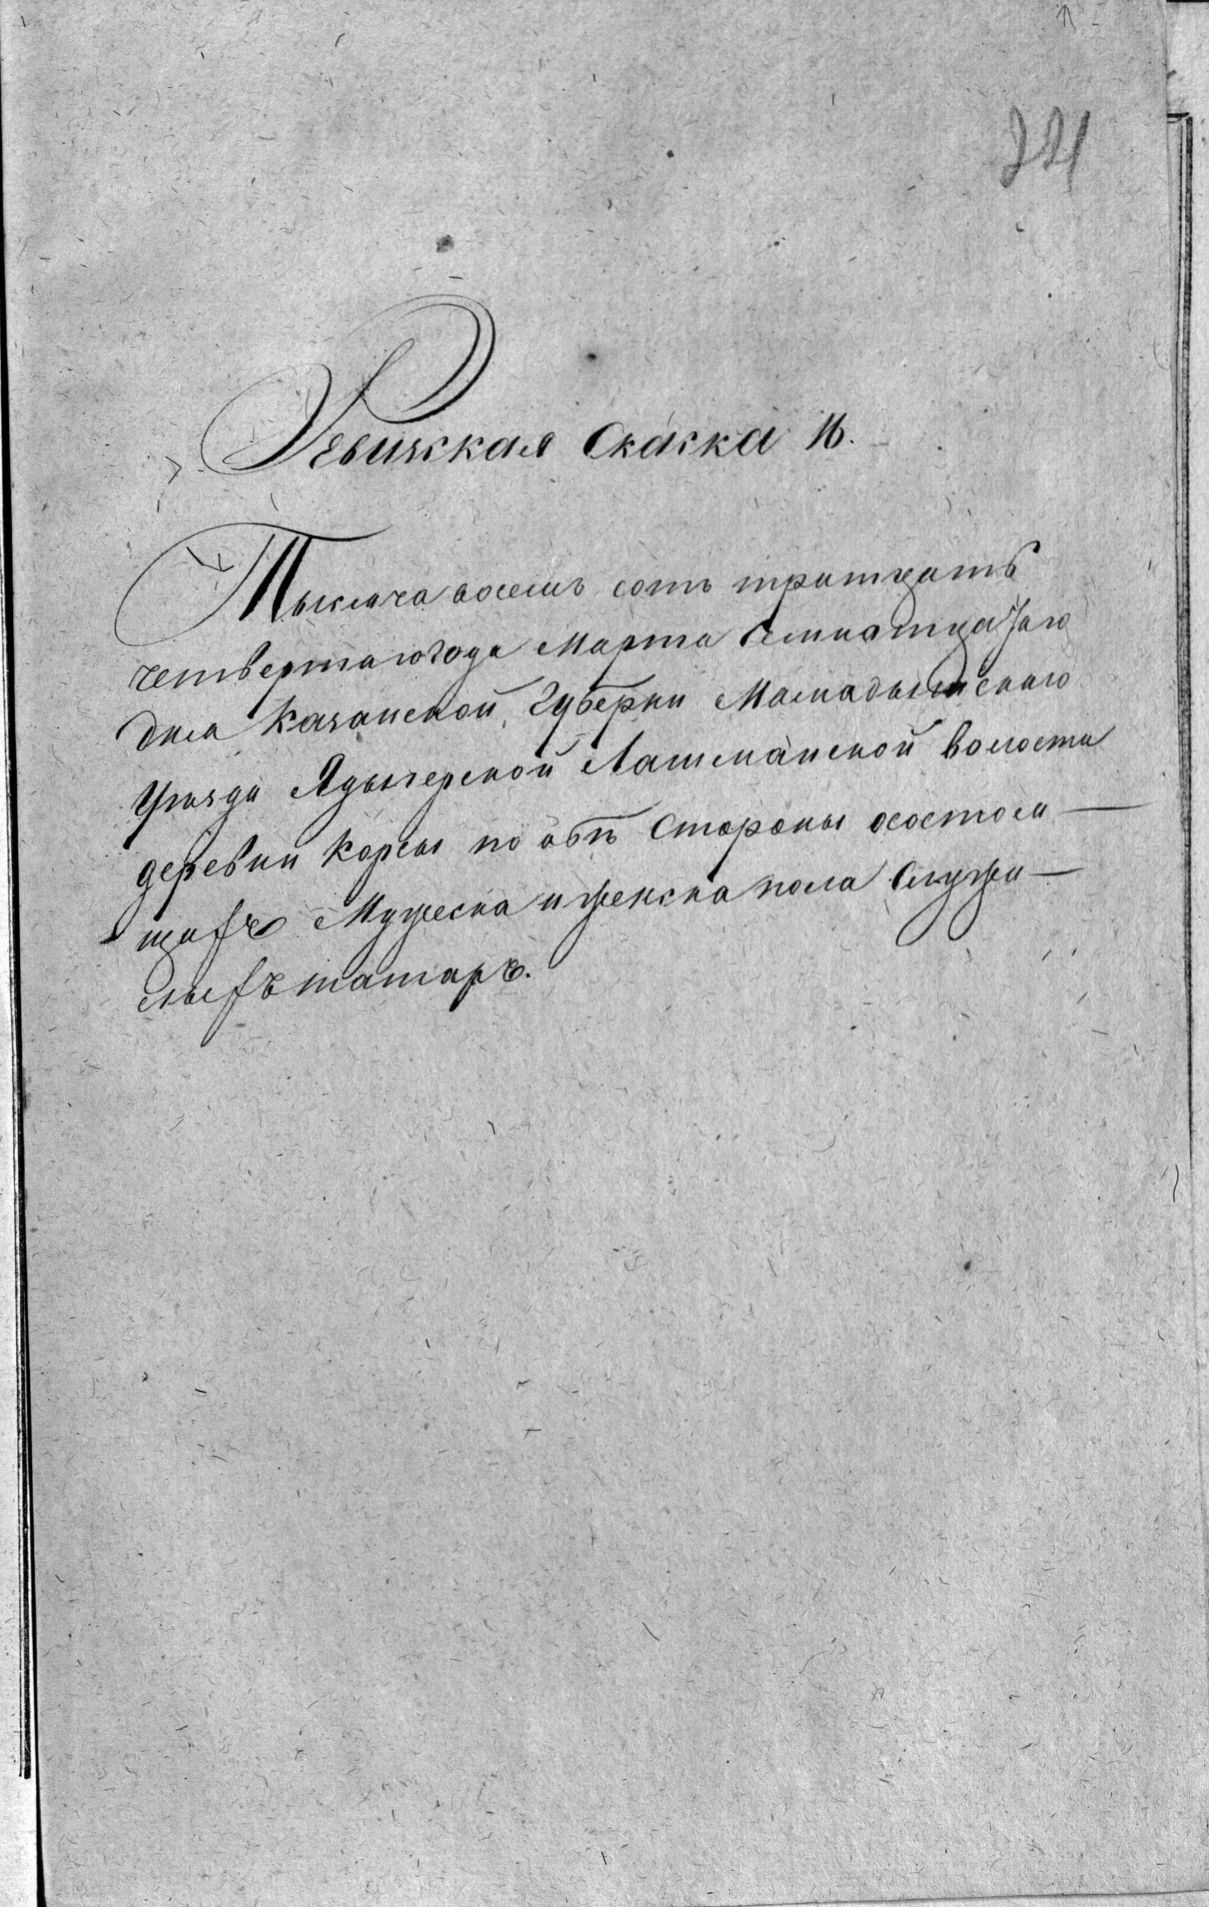 221
Ревижкая Скаска 16.
Тысяча восемь сотъ тритцать
четвертаго года Марта Семнатцатаго
дня Казанской Губерни Мамадышскаго
Уѣзда Ядыгерской Лашманской волости
деревни Корсы по обѣ Стороны состоя
щихъ Мужеска и женска пола Служи
лыхъ татаръ.